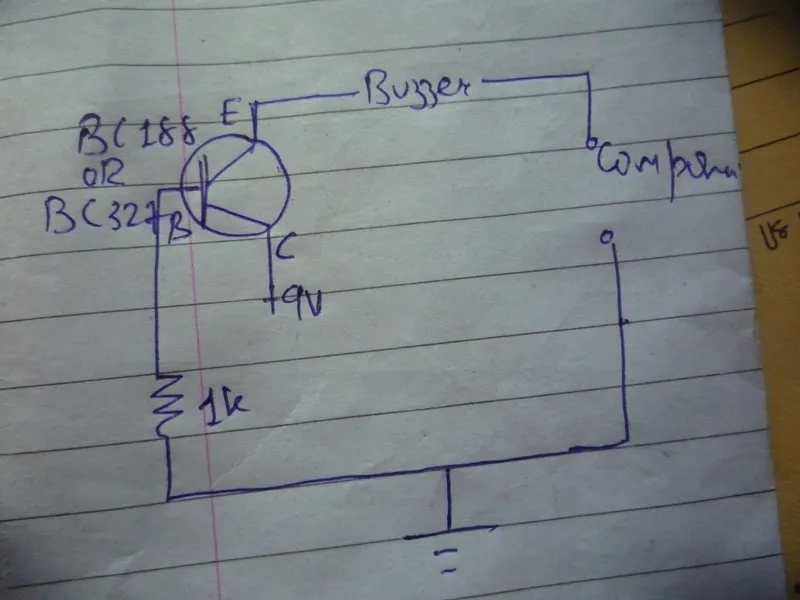 E Buzzer
BC188
OR
BC327
B
C
+9V
1k